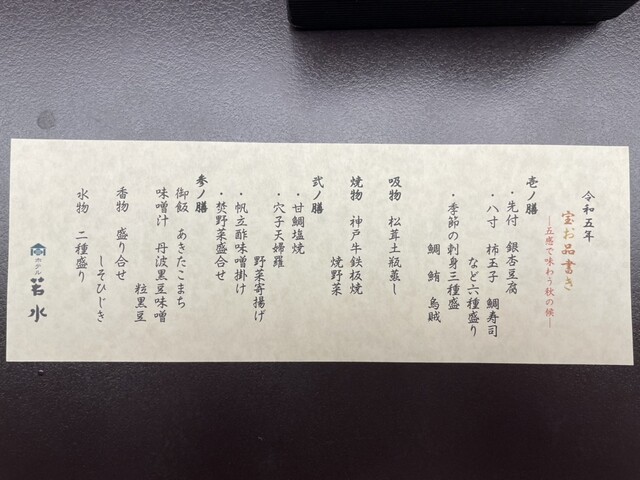 令和五年
宝お品書き
―五感で味わう秋の候―
壱ノ膳
・先付 銀杏豆腐
・八寸 柿玉子 鯛寿司
など六種盛り
・季節の刺身三種盛
鯛 鮪 烏賊
吸物 松茸土瓶蒸し
焼物 神戸牛鉄板焼
焼野菜
弐ノ膳
・甘鯛塩焼
・穴子天婦羅
野菜寄揚げ
・帆立酢味噌掛け
・焚野菜盛合せ
参ノ膳
御飯 あきたこまち
味噌汁 丹波黒豆味噌
粒黒豆
香物 盛り合せ
しそひじき
水物 二種盛り
ホテル
若水